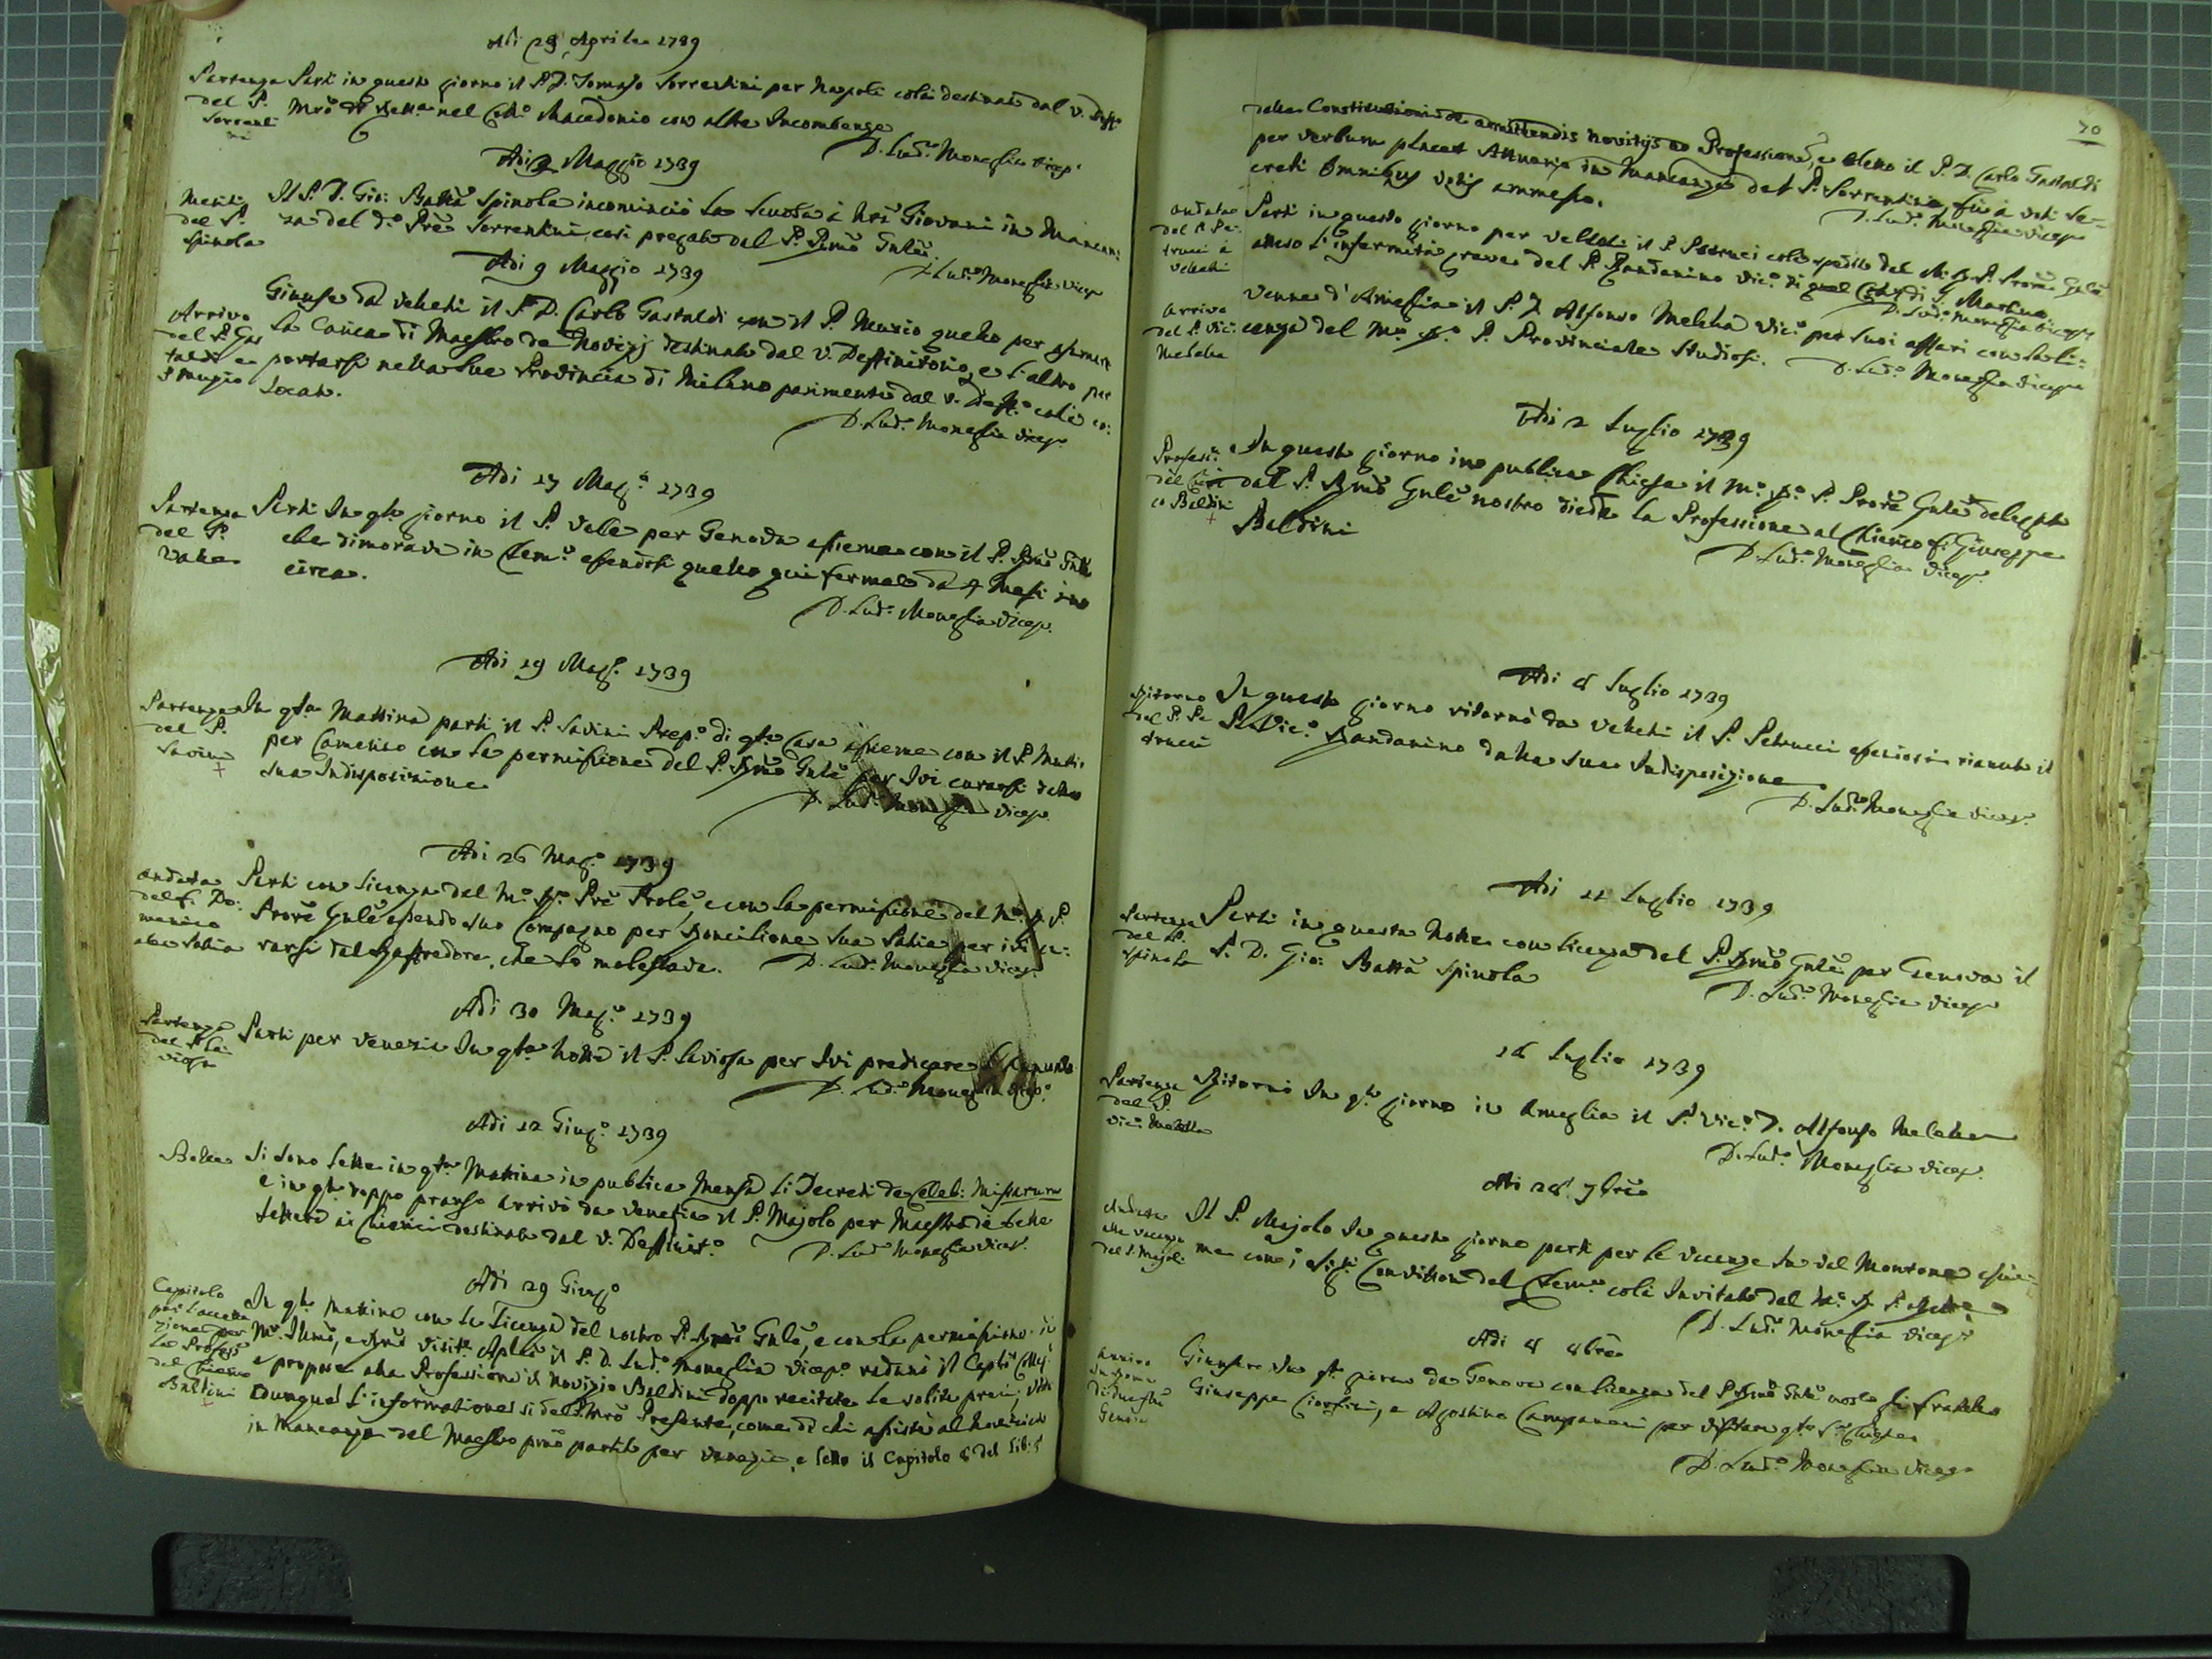 Adi 29 Aprile 1739
Partenza
del P.
Sorrenti
ni
Partì in questo giorno il P. D. Tomaso Sorrentini per Napoli colà destinato dal V. Deff.o
Mrō di Rett.a nel Coll.o Macedonio con altre Incombenze
D. Lud.o Moneglia Vicep.o
Adi 2 Maggio 1739
del P.
Spinola
Il P. D. Gio: Battā Spinola incominciò la Scuola à Nrī Giovani in Mancan:
za del d.o Prē Sorrentini, così pregato dal P. Rmō Gnlē.
D. Lud.o Moneglia Vicep.
Adi 9 Maggio 1739
Arrivo
del P. Gas
taldi e
P. Muzio
Giunse da Velletri il P. D. Carlo Gastaldi con il P. Muzio quello per assumere
la Carica di Maestro de Novizj destinato dal V. Deffinitorio, e l'altro per
portarsi nella sua Provincia di Milano parimente dal V. Deff.o colà co:
locato.
D. Lud.o Moneglia Vicep.
Adi 17 Mag.o 1739
Partenza
del P.
Valle
Partì In q.to giorno il P. Valle per Genova assieme con il P. Rmō Gnlē
che dimorava in Clem.o essendosi quello qui fermato da 4 Mesi in
circa.
D. Lud.o Moneglia Vicep.
Adi 19 Mag.o 1739
Partenza
del P.
Savini
+
In q.ta Mattina partì il P. Savini Prep.o di q.ta Casa assieme con il P. Mutii
per Camerino con la permissione del P. Rmō Gnlē per Ivi curarsi della
sua Indisposizione
D. Lud.o Moneglia Vicep.
Adi 26 Mag.o 1739
andata
del f. Do:
menico
alla Patria
Partì con licenza del M.o R.o Prē Prolē, e con la permissione del M.o R. P.
Prorē Gnlē essendo suo Compagno per Ronciglione sua Patria per ivi cu:
rarsi del Raffredore, che lo molestava.
D. Lud.o Moneglia Vicep.
Adi 30 Mag.o 1739
Partenza
del P. La
viosa
Partì per Venezia In q.ta Notte il P. Laviosa per Ivi predicare
D. Lud.o Moneglia Vicep.o
Adi 12 Giug.o 1739
Bolle
Si sono lette in q.ta Mattina in publica Mensa li Decreti de Celeb: Missarum
e in q.to doppo pranzo arrivò da Venezia il P. Majolo per Maestro di belle
lettere ai Chierici destinato dal V. Deffinit.o
D. Lud.o Moneglia Vicep.
Adi 29 Giug.o
Capitolo
per l'accetta
zione per
la Profess.
del Chierico
Baldini
+
In q.ta Mattina con la licenza del nostro P. Rmō Gnlē, e con la permissione di
M.r Illmō, e Rmō Visit.e Aplicō il P. D. Lud.o Moneglia Vicep.o radunò il Capit.o Coll.e
e propose alla Professione il Novizio Baldini doppo recitate le solite preci, Uditi
dunque l'informatione si del P. Mrō Presente, come di chi assistè al Noviziato
in Mancanza del Maestro prmō partito per Venezia, e letto il Capitolo 8 del Lib: 3
70
delle Constitutioni de amittendis Novitijs ad Professionē, e eletto il P. D. Carlo Gastaldi
per verbum placet Attuario in Mancanza del P. Sorrentini, fù a voti se=
creti Omnibus votis ammesso.
D. Lud.o Moneglia Vicep.
andata
del P. Pe
trucci à
Velletri
Partì in questo giorno per Velletri il P. Petrucci colà spedito dal M. R. P. Prorē Gnlē
atteso l'infermità grave del P. Randanino Vic.o di quel Coll.o di S. Martino.
D. Lud.o Moneglia Vicep.
Arrivo
del P. Vic.
Melella
Venne d'Amelia il P. D. Alfonso Melella Vic.o per suoi affari con la li:
cenza del M.o R.o P. Provinciale Studiosi.
D. Lud.o Moneglia Vicep.
Adi 2 Luglio 1739
Profess.e
del Chieri
co Baldini
+
In questo giorno in publica Chiesa il M.o R.o P. Prorē Gnlē delegato
dal P. Rmō Gnlē nostro diede la Professione al Chierico f. Giuseppe
Baldini
D. Lud.o Moneglia Vicep.
Adi 8 Luglio 1739
Ritorno
del P. Pe
trucci
In questo giorno ritornò da Velletri il P. Petrucci essendosi riavuto il
P. Vic.o Randanino dalla sua Indisposizione
D. Lud.o Moneglia Vicep.
Adi 11 Luglio 1739
Partenza
del P.
Spinola
Partì in questa Notte con licenza del P. Rmō Gnlē per Genova il
P. D. Gio: Battā Spinola
D. Lud.o Moneglia Vicep.
16 Luglio 1739
Partenza
del P.
Vic. Melella
Ritornò In q.to giorno in Amelia il P. Vic.o D. Alfonso Melella
D. Lud.o Moneglia Vicep.
Adi 28 7brē
Andata
alle vacanze
del P. Majoli
Il P. Majolo In questo giorno partì per le vacanze In val Montone assie:
me con i Sig.ri Convittori del Clem.o colà Invitato dal M.o R. P. Rettore
D. Lud.o Moneglia Vicep.
Adi 8 8bre
Arrivo
In Roma
di due f.lli
Genov.
Giunsero In q.to giorno da Genova con licenza del P. Rmō Gnlē nostro li fratelli
Giuseppe Ciorsini, e Agostino Campanari per visitare q.te S.te Chiese
D. Lud.o Moneglia Vicep.